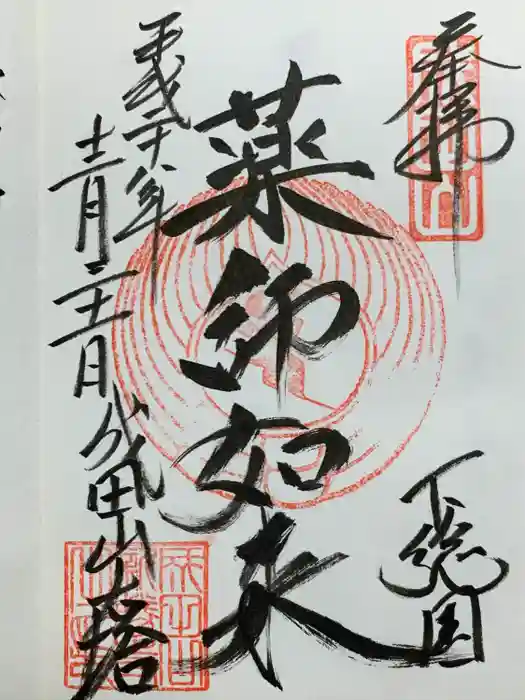 奉拝
下総国
薬師如来
平成二十八年
十二月二十二日 成田山